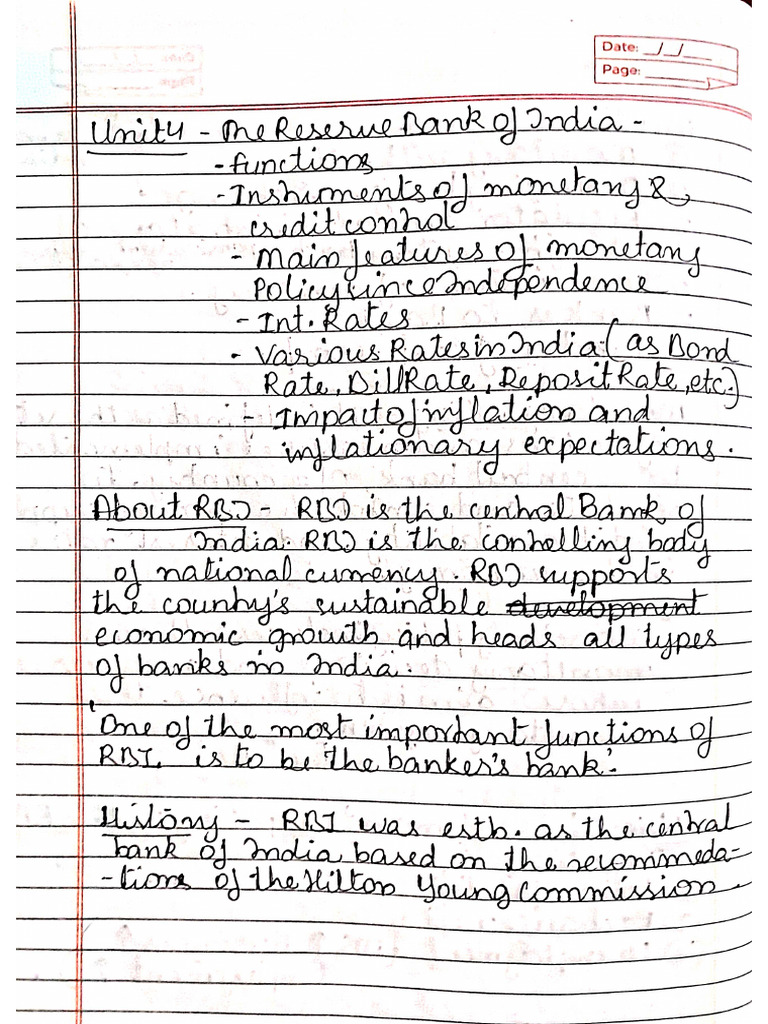 Date: __/__/____
Page: ________
Unit 4 - The Reserve Bank of India -
- functions
- Instruments of monetary &
credit control
- Main features of monetary
Policy since Independence
- Int. Rates
- Various Rates in India (as Bond
Rate, Bill Rate, Deposit Rate, etc.)
- Impact of inflation and
inflationary expectations.
About RBI - RBI is the central Bank of
India. RBI is the controlling body
of national currency. RBI supports
the country's sustainable development
economic growth and heads all types
of banks in India.
'One of the most important functions of
RBI, is to be the banker's bank'.
History - RBI was estb. as the central
bank of India based on the recommeda-
-tions of the Hilton Young Commission.